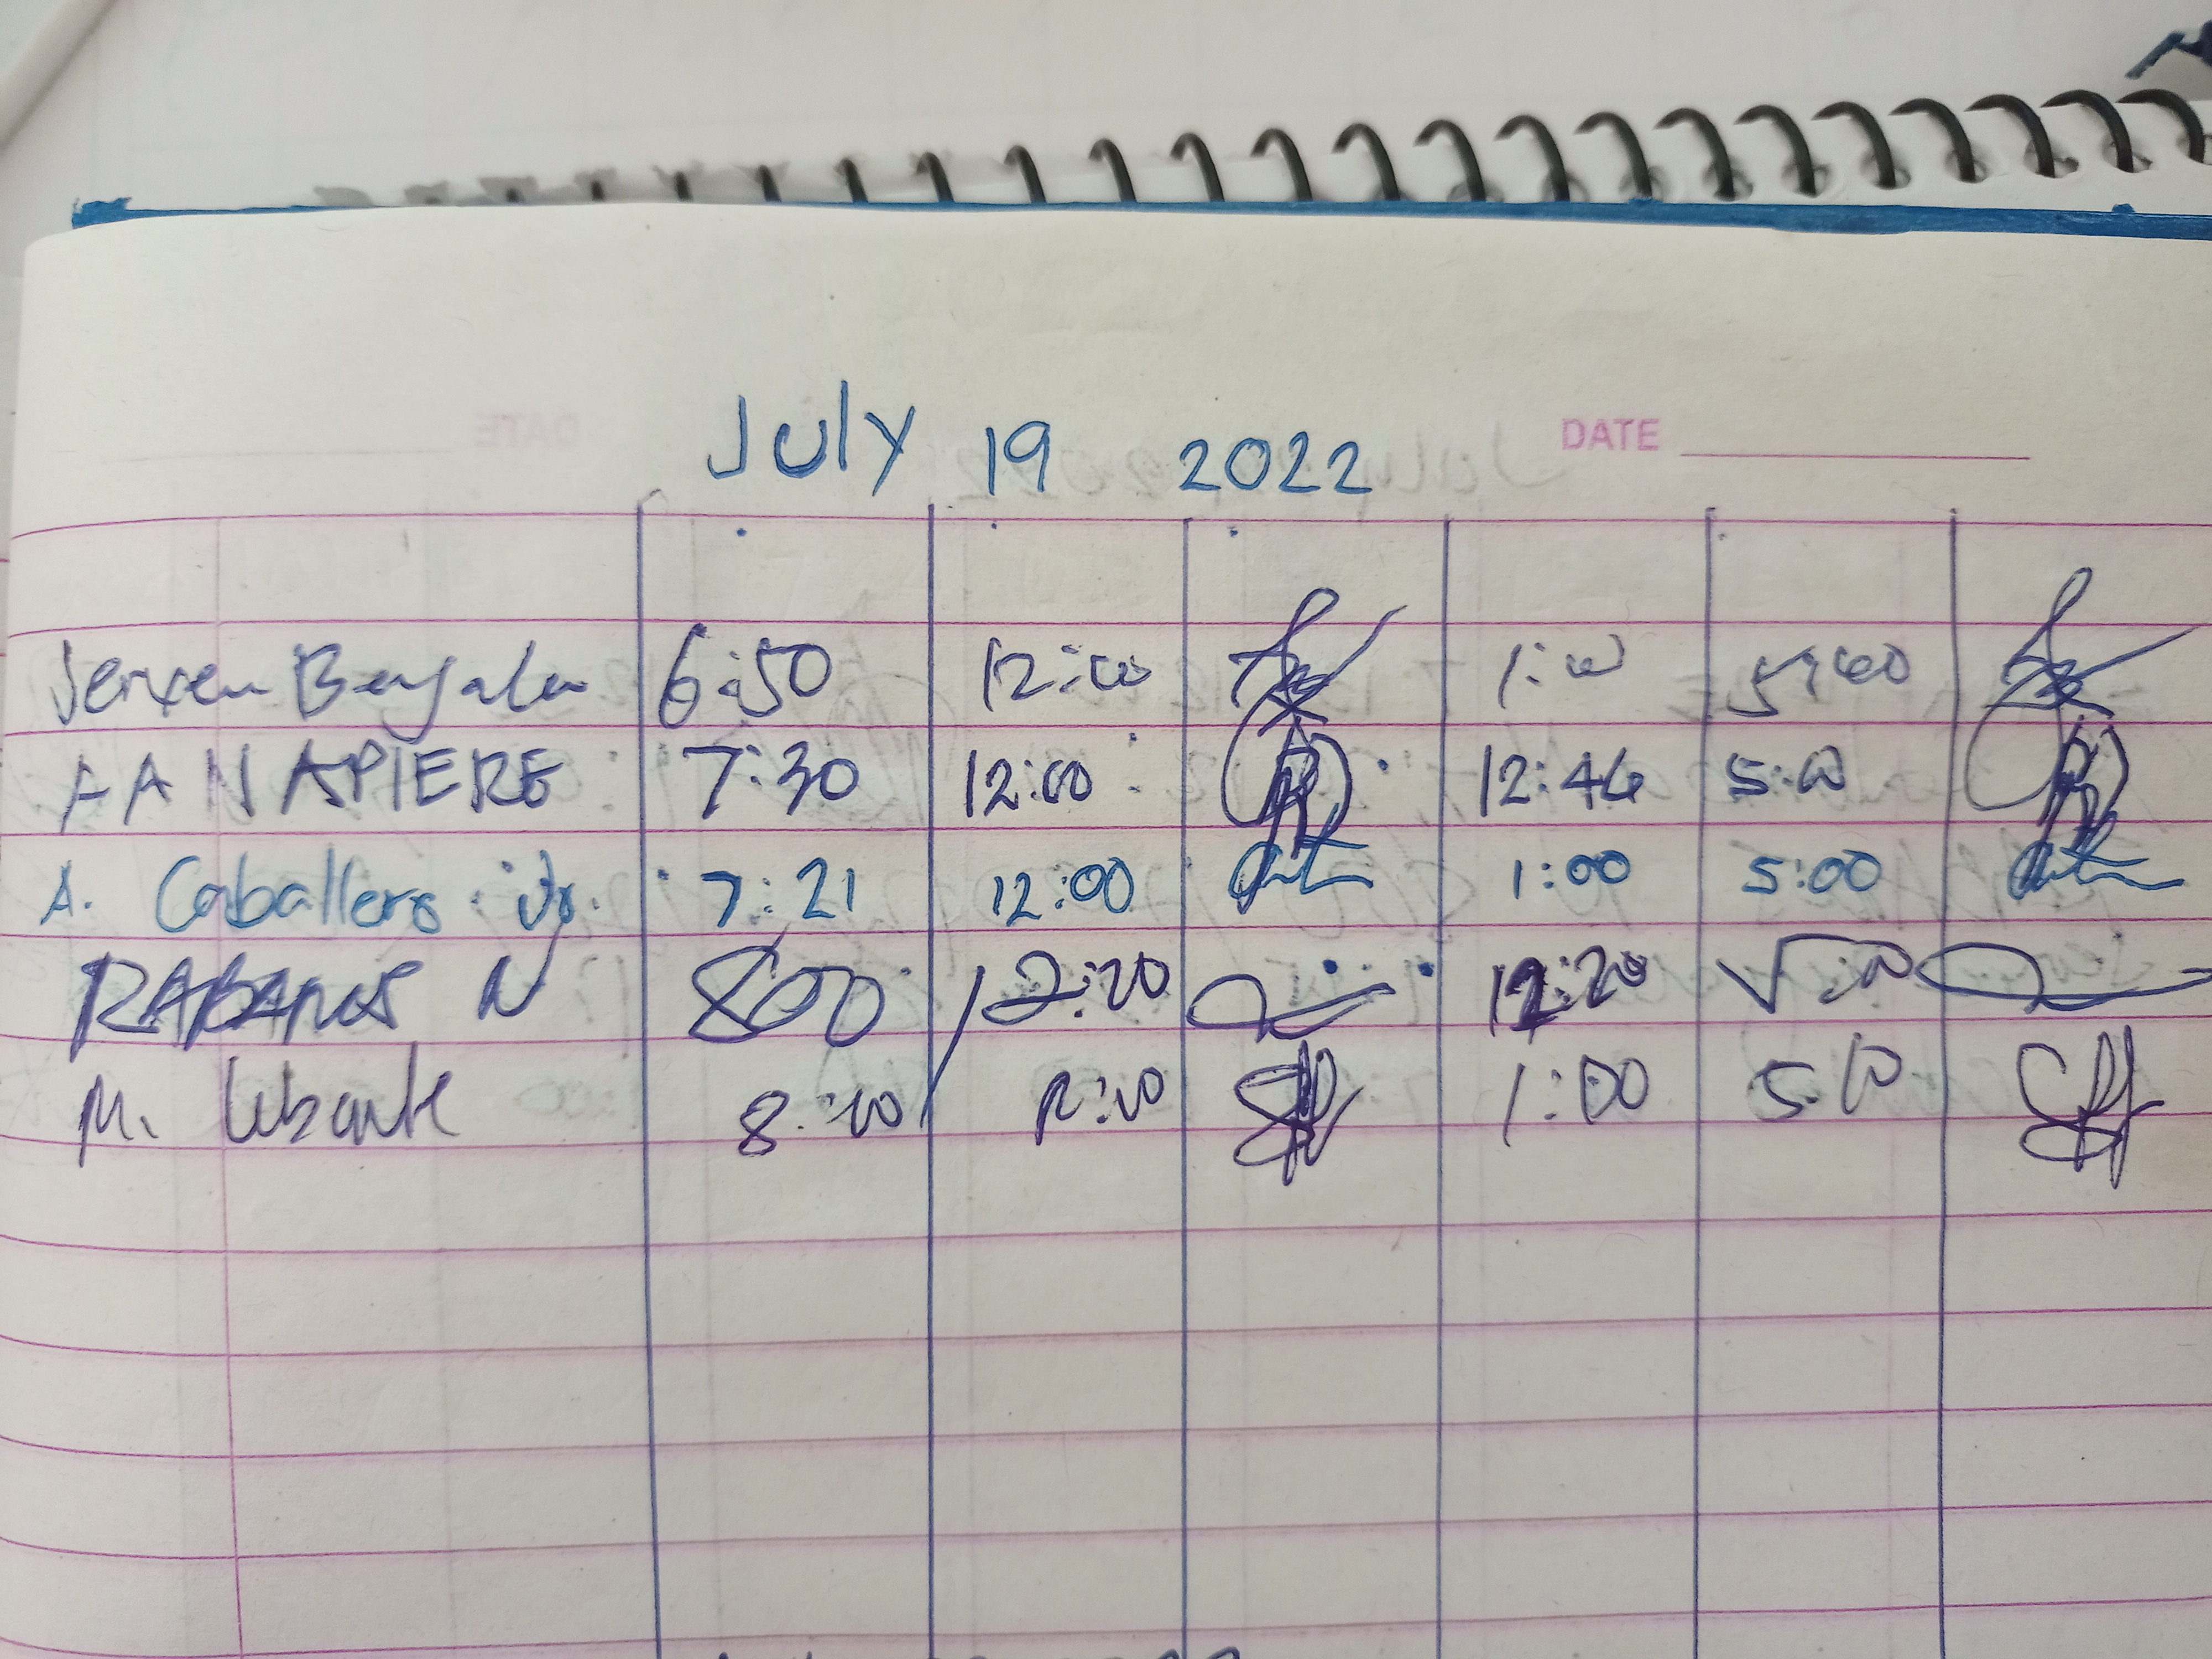 July 19 2022 DATE
6:50 12:00 1:00
FANAPIERE 7:30 12:00 12:46 5:00
A. Caballero Jr. 7:21 12:00 1:00 5:00
RABANOS N 800 12:20 12:20 5:00
M. 8:00 12:00 1:00 5:00